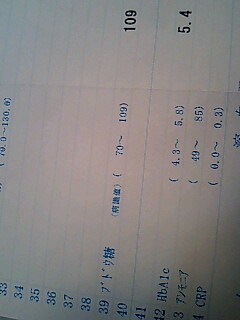 33
34
35
36
37
38
39 ブドウ糖 ( 70～ 109) 109
40
41
42 HbA1c ( 4.3～ 5.8) 5.4
3 アンモニア ( 49～ 85)
4 CRP ( 0.0～ 0.3)